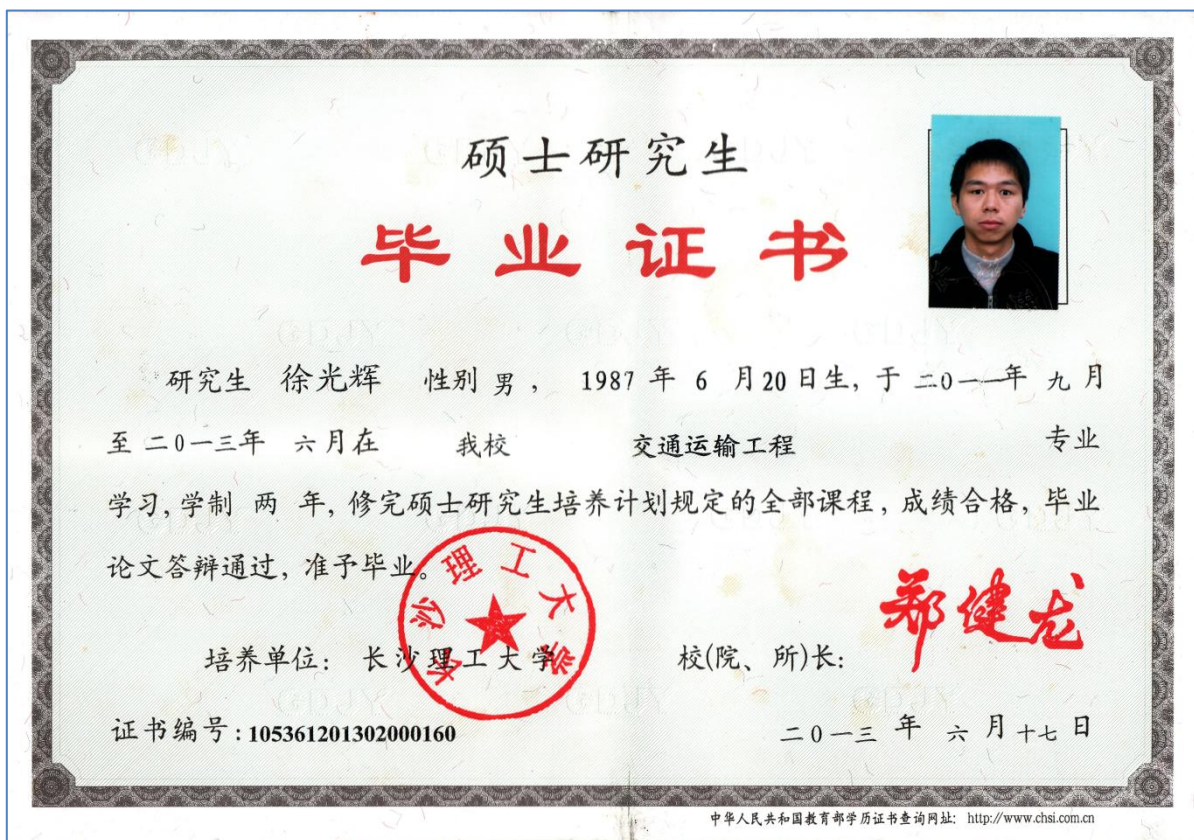 硕士研究生
毕业证书
研究生 徐光辉 性别 男， 1987 年 6 月 20 日生，于 二0一一年 九 月
至 二0一三年 六 月在 我校 交通运输工程 专业
学习，学制 两 年，修完硕士研究生培养计划规定的全部课程，成绩合格，毕业
论文答辩通过，准予毕业。
长沙理工大学
郑健龙
培养单位： 长沙理工大学 校(院、所)长：
证书编号：105361201302000160 二0一三 年 六 月 十七 日
中华人民共和国教育部学历证书查询网址： http://www.chsi.com.cn